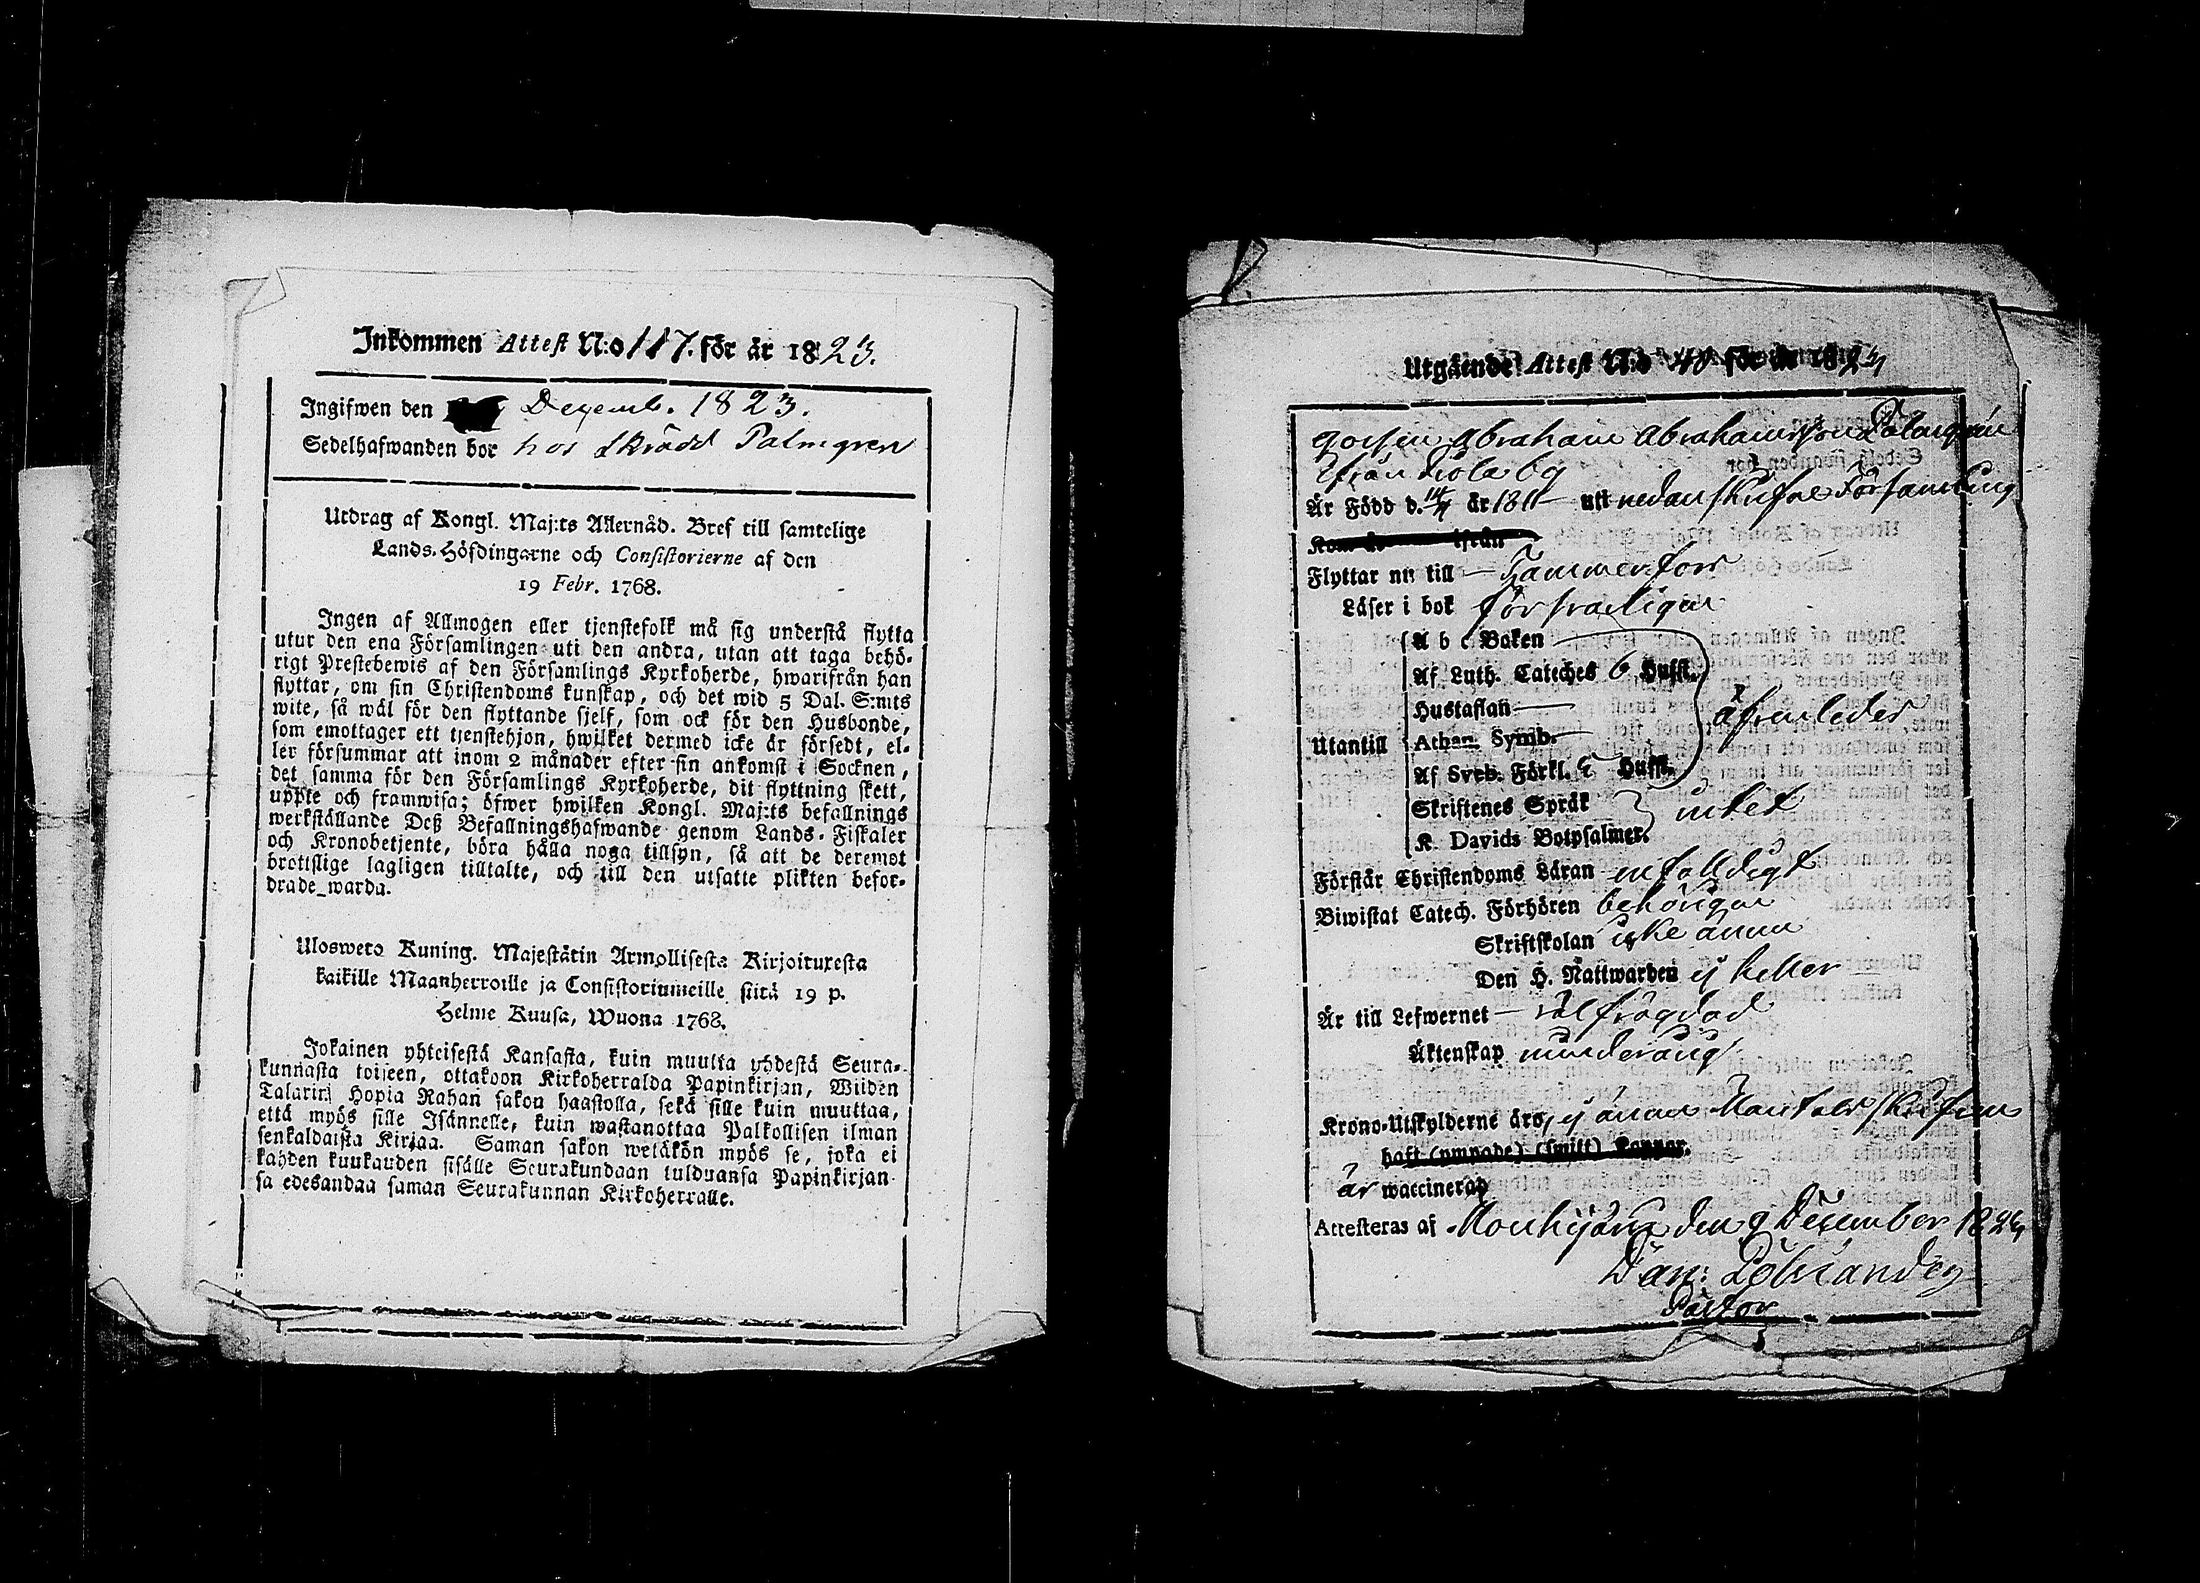 Inkommen Attest N:o 117. för år 1823.
Ingifwen den Decemb. 1823.
Sedelhafwanden bor hos Skrädd Palmgren
Utdrag af Kongl. Maj:ts Allernåd. Bref till samtelige
Lands-Höfdingarne och Consistorierne af den
19 Febr. 1768.
Ingen af Allmogen eller tjenstefolk må sig understå flytta
utur den ena Församlingen uti den andra, utan att taga behö-
rigt Prestebewis af den Församlings Kyrkoherde, hwarifrån han
flyttar, om sin Christendoms kunskap, och det wid 5 Dal. S:mts
wite, så wäl för den flyttande sjelf, som ock för den Husbonde,
som emottager ett tjenstehjon, hwilket dermed icke är försedt, el-
ler försummar att inom 2 månader efter sin ankomst i Socknen,
det samma för den Församlings Kyrkoherde, dit flyttning skett,
uppte och framwisa; öfwer hwilken Kongl. Maj:ts befallnings
werkställande Deß Befallningshafwande genom Lands-Fiskaler
och Kronobetjente, böra hålla noga tillsyn, så att de deremot
brottslige lagligen tilltalte, och till den utsatte plikten befor-
drade warda.
Ulosweto Kuning. Majestätin Armollisesta Kirjoituresta
kaikille Maanherroille ja Consistoriumeille siitä 19 p.
Helme Kuusa, Wuona 1768.
Jokainen yhteisestä Kansasta, kuin muutta yhdestä Seura-
kunnasta toiseen, ottakoon Kirkoherralda Papinkirjan, Wiiden
Talarin Hopia Rahan sakon haastolla, sekä sille kuin muuttaa,
että myös sille Isännelle, kuin wastanottaa Palkollisen ilman
senkaldaista Kirjaa. Saman sakon wetäkön myös se, joka ei
kahden kuukauden sisälle Seurakundaan tulduansa Papinkirjan-
sa edesandaa saman Seurakunnan Kirkoherralle.
Utgående Attest N:o 40 för år 1823
gossen Abraham Abrahamsson Palmgren
ifrån
Är Född d. år 1811 uti nedanskrifne Församling
Kom år ifrån
Flyttar nu till Tammerfors
Läser i bok försvarligen
A b c Boken
Af Luth. Cateches 6 Hufst.
Hustaflan
Utantill Athan. Symb. äfvenledes
Af Sveb. Förkl. Hufst.
Skriftenes Språk intet
K. Davids Botpsalmer.
Förstår Christendoms Läran enfalldigt
Biwistat Catech. Förhören behörigen
Skriftskolan icke ännu
Den H. Nattwarden ej heller
Är till Lefwernet välfrägdad
Äktenskap minderårig
Krono-Utskylderne äro, ej ännu Mantalsskrifven
haft (ympade) (smitt) Koppor.
är waccinerad
Attesteras af Mouhijärvi den 9 December 1823
Dan:
Pastor